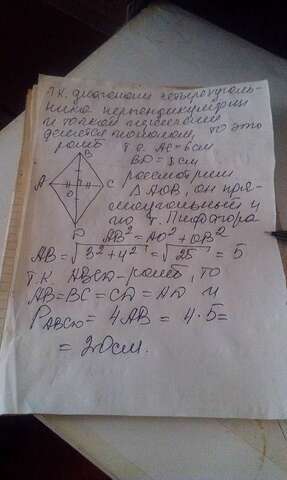 Т.к. диагонали четырёхуголь-
ника перпендикулярны
и точкой пересечения
делятся пополам, то это
ромб Т.о. AC = 6 см
B
BD = 8 см
A O C
рассмотрим
△AOB, он пря-
моугольный и
D
по т. Пифагора
AB² = AO² + OB²
AB = √3² + 4² = √25 = 5
Т.к. ABCD - ромб, то
AB = BC = CD = AD и
P ABCD = 4AB = 4 · 5 =
= 20 см.